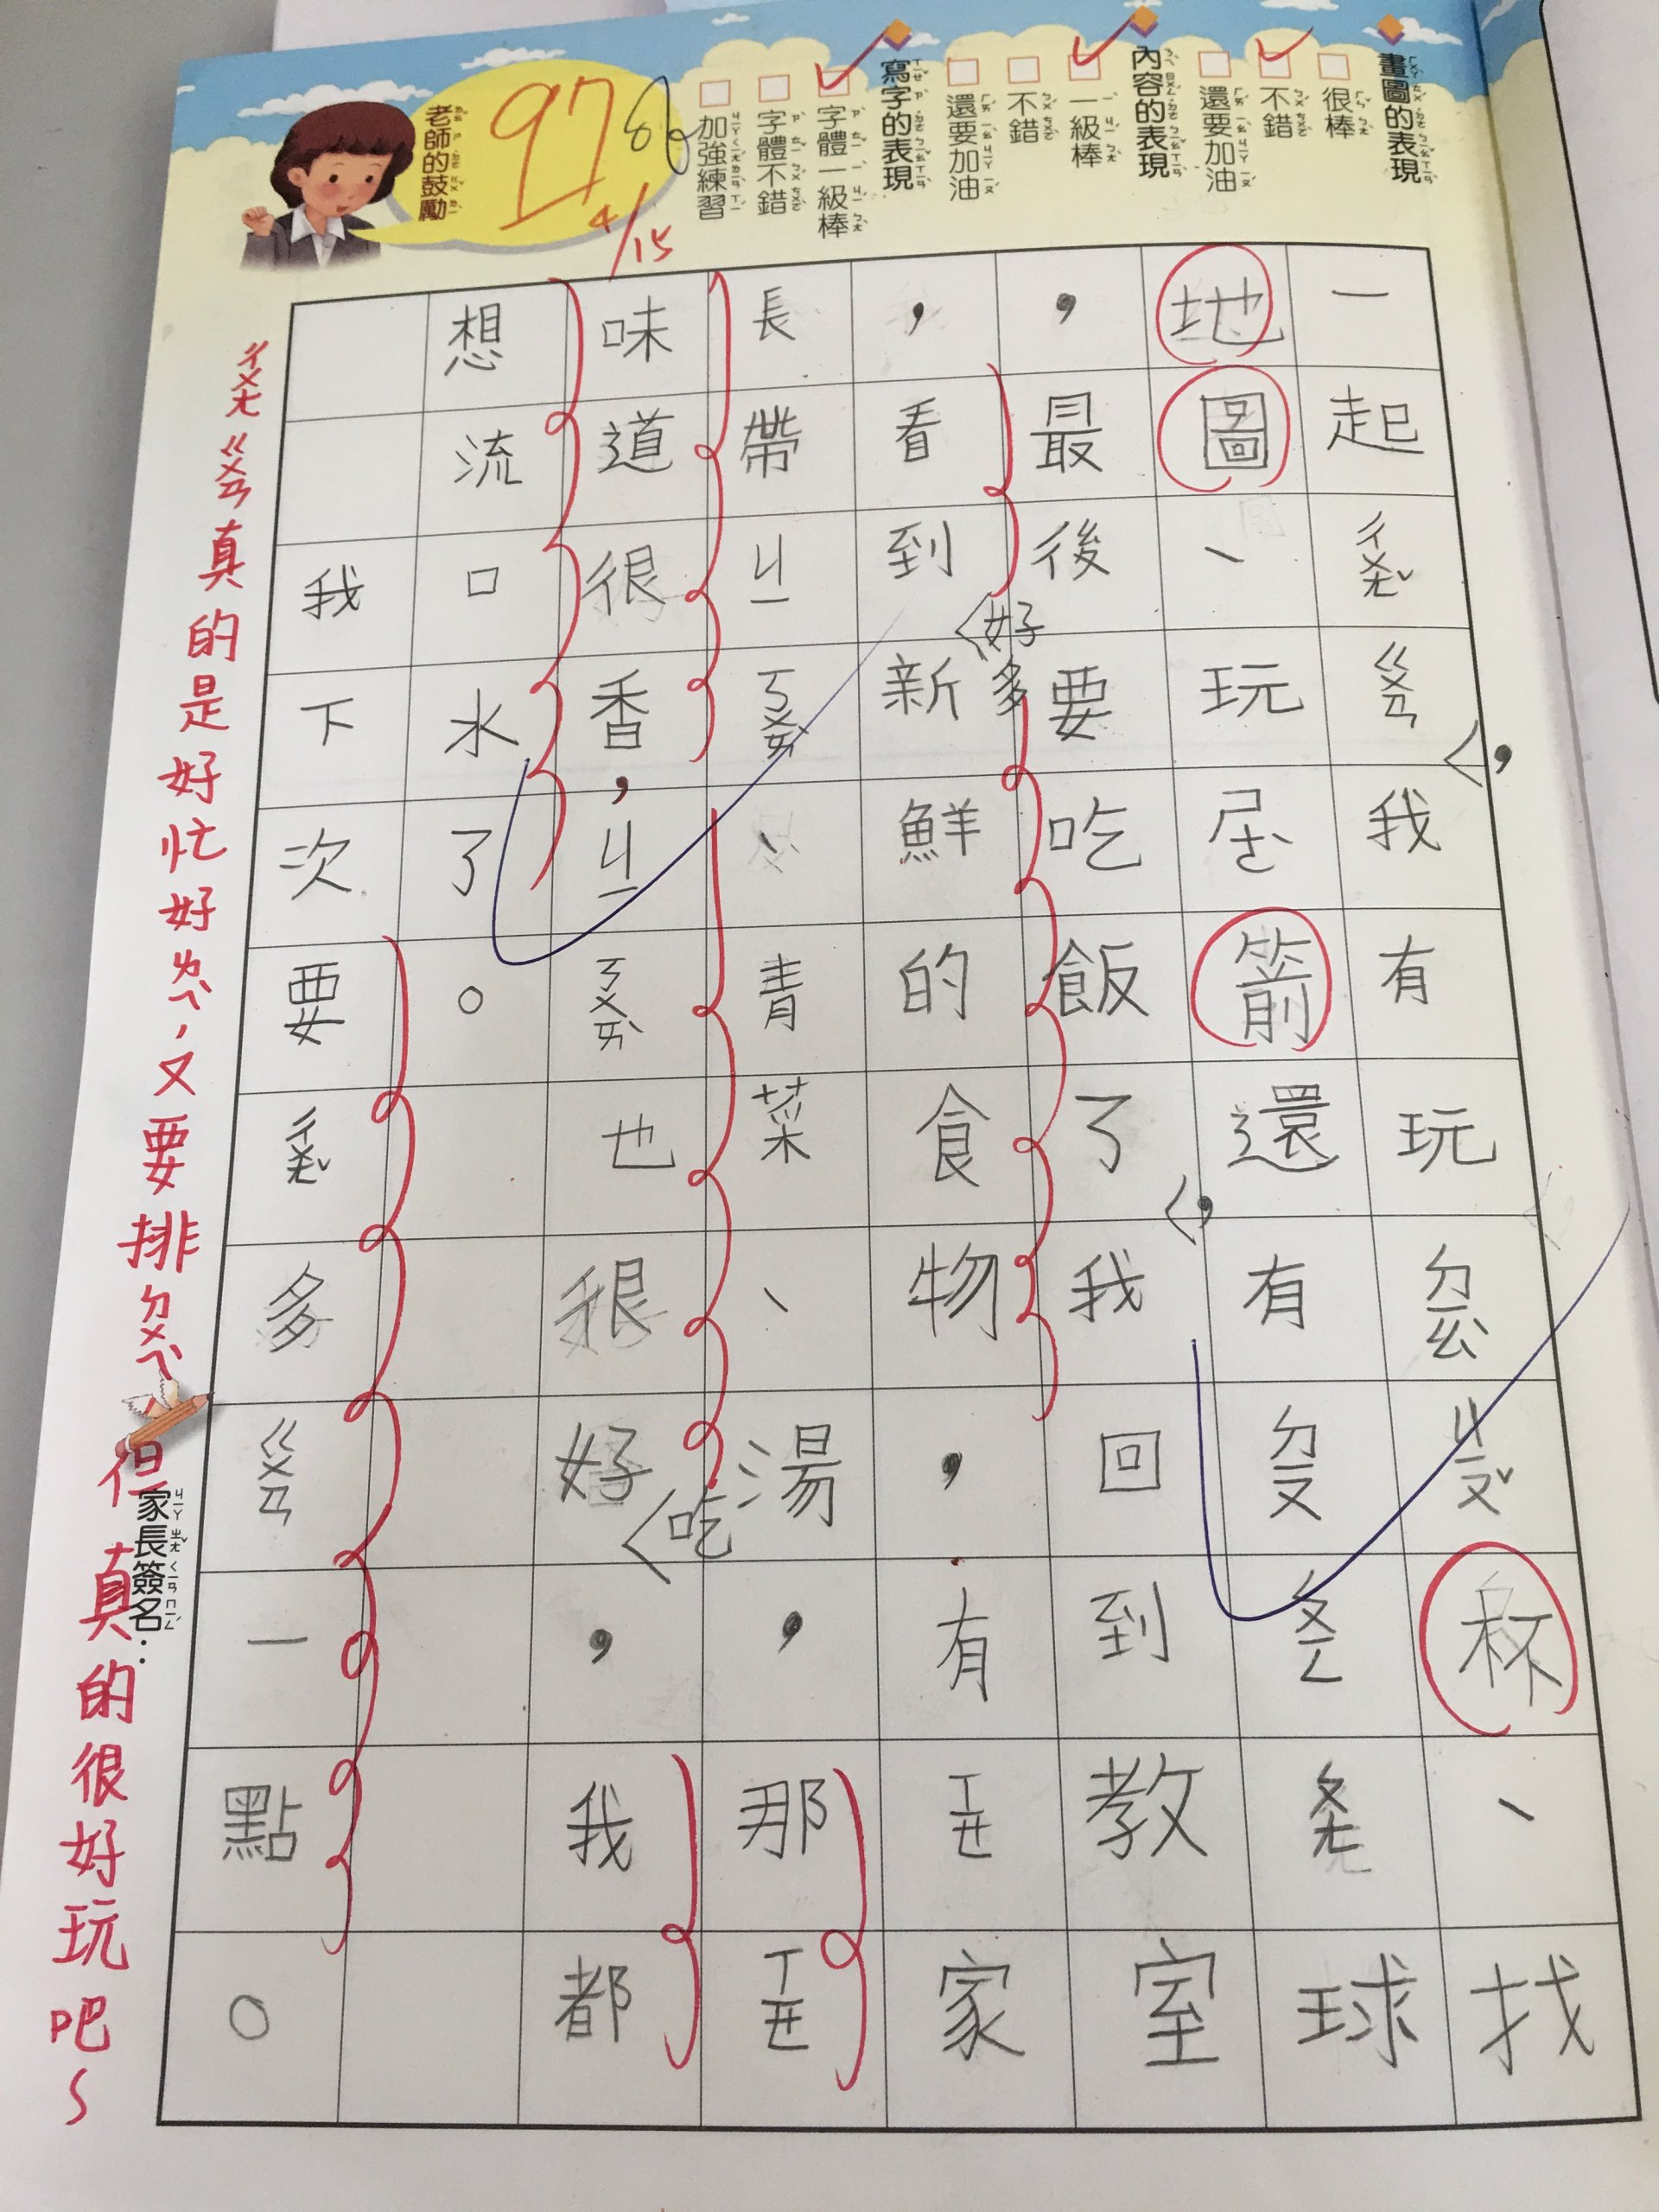 畫圖的表現
很棒
不錯
還要加油
內容的表現
一級棒
不錯
還要加油
寫字的表現
字體一級棒
字體不錯
加強練習
97
4/15
老師的鼓勵
一起ㄔㄨㄤˇㄍㄨㄢ,我有玩ㄐㄧㄡˇ杯、找
地圖、玩ㄕㄜ箭還有ㄉㄧㄡㄆㄧㄥㄆㄤ球
,最後要吃飯了,我回到教室
,看到好多新鮮的食物,有ㄒㄧㄝ家
長帶ㄐㄧㄎㄨㄞˋ、青菜、湯,那ㄒㄧㄝ
味道很香,ㄐㄧㄎㄨㄞˋ也很好吃,我都
想流口水了。
我下次要ㄔㄨㄤˇ多ㄍㄨㄢ一點。
ㄔㄨㄤㄍㄨㄢ真的是好忙好ㄌㄟˋ,又要排ㄉㄨㄟˋ,但真的很好玩吧~
家長簽名: